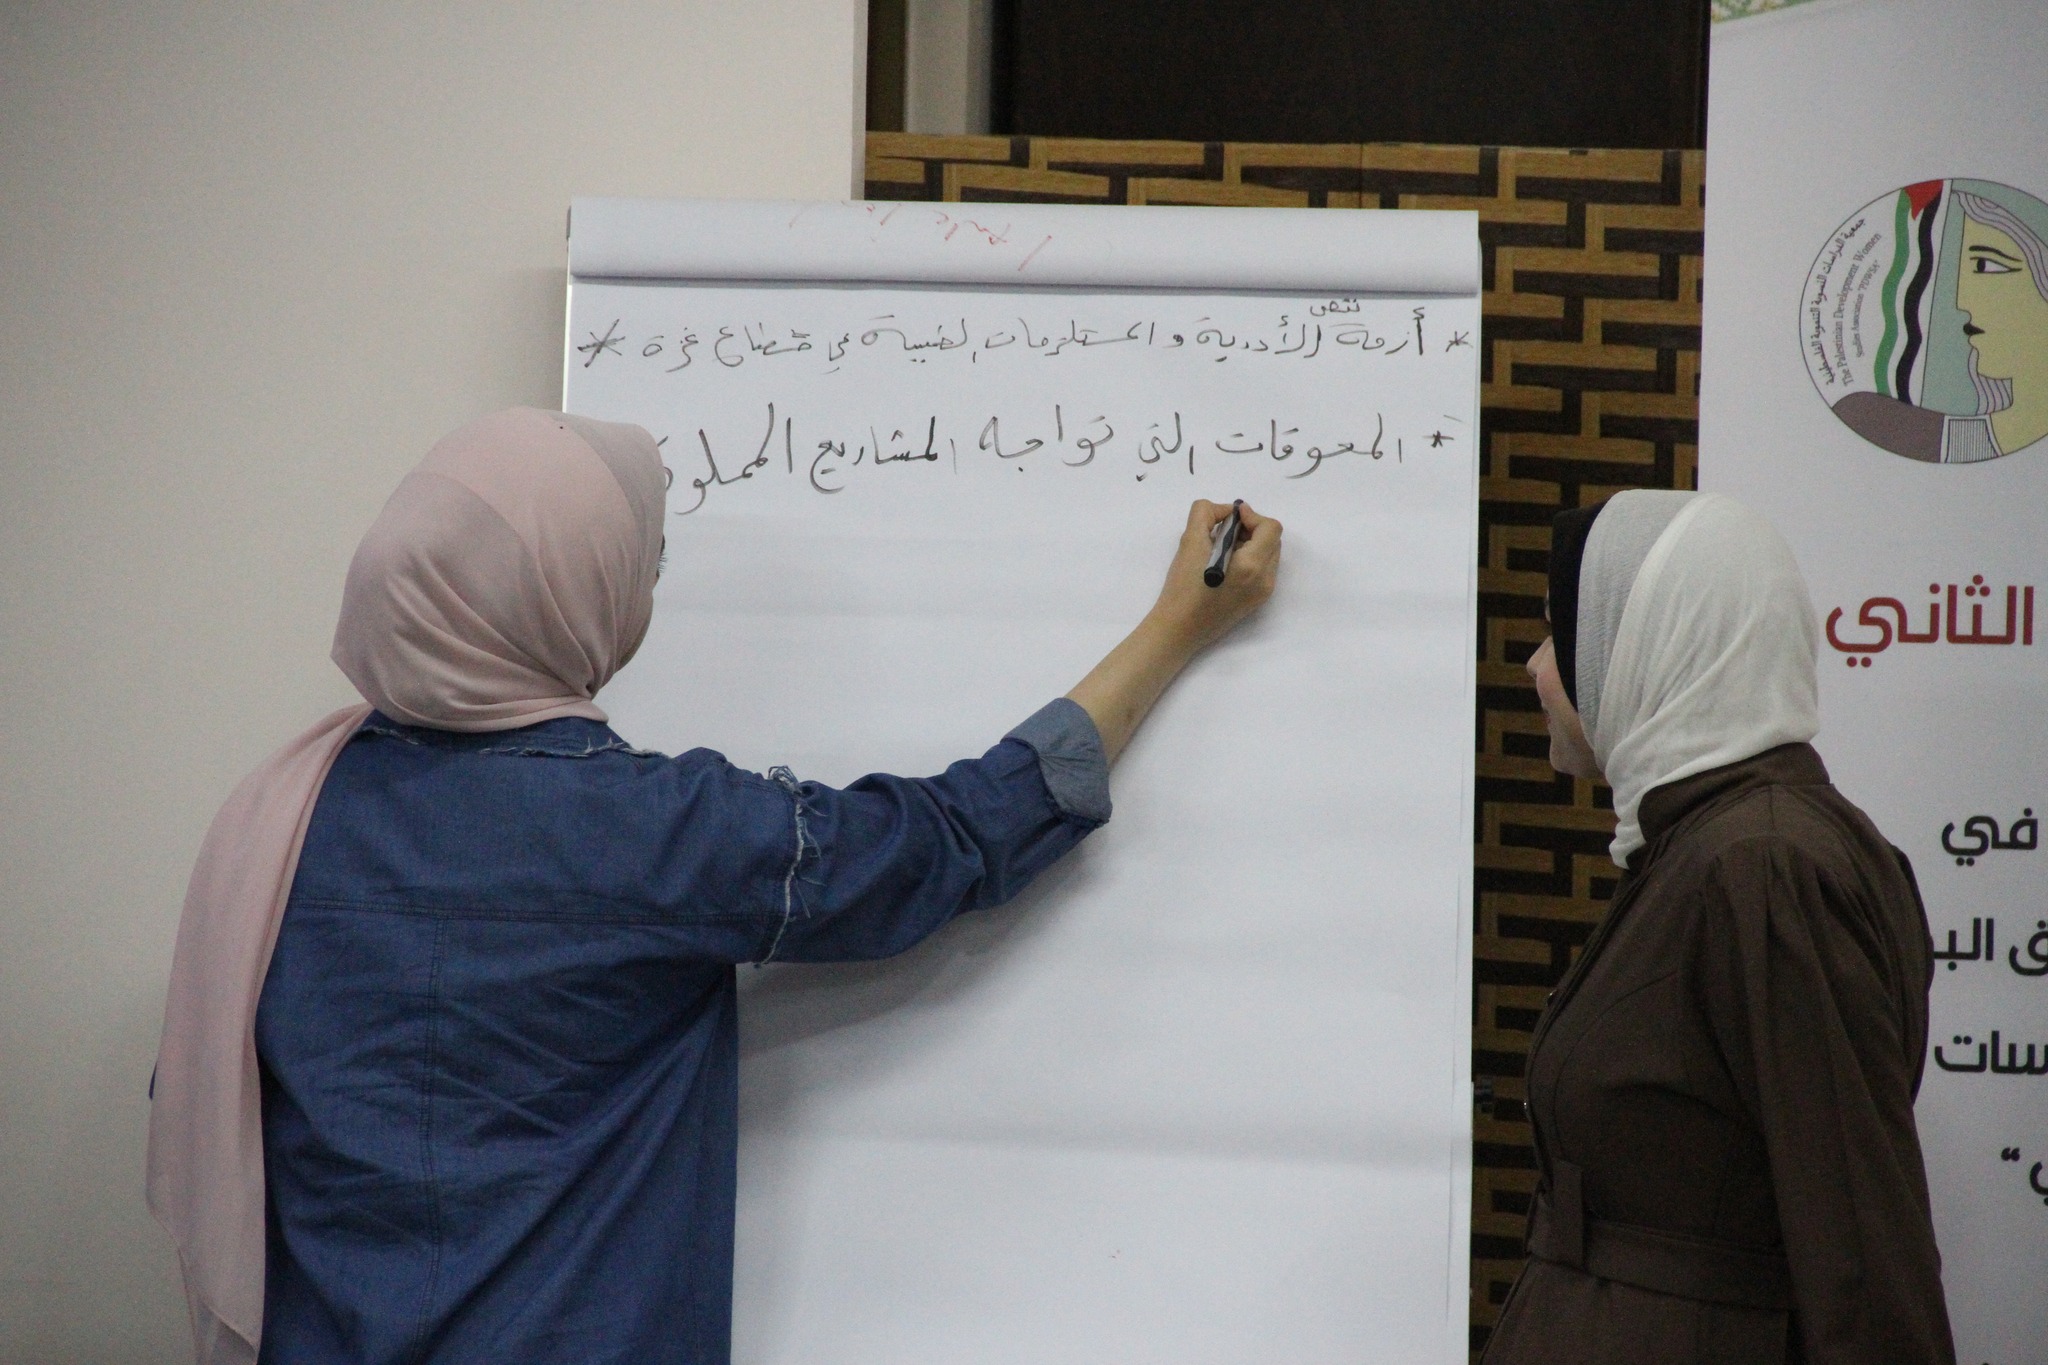 نقص
* أزمة الأدوية و المستلزمات الطبية في قطاع غزة *
* المعوقات التي تواجه المشاريع المملوكة
جمعية الدراسات النسوية التنموية الفلسطينية
The Palestinian Development Women
Studies Association "PDWSA"
الثاني
في
ق الب
سات
ي "